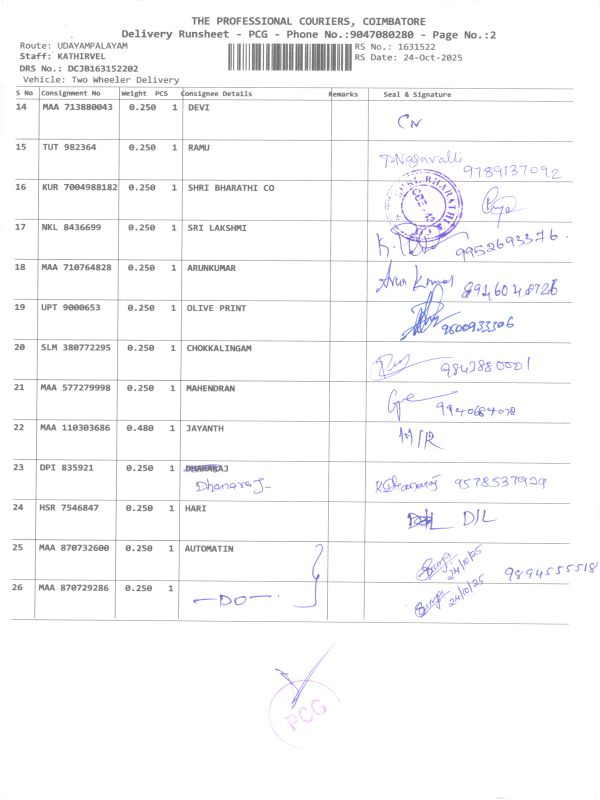 THE PROFESSIONAL COURIERS, COIMBATORE
Delivery Runsheet - PCG - Phone No.:9047080280 - Page No.:2
Route: UDAYAMPALAYAM RS No.: 1631522
Staff: KATHIRVEL RS Date: 24-Oct-2025
DRS No.: DCJB163152202
Vehicle: Two Wheeler Delivery
S No Consignment No Weight PCS Consignee Details Remarks Seal & Signature
14 MAA 713880043 0.250 1 DEVI CN
15 TUT 982364 0.250 1 RAMU T-Nagavalli 9789137092
16 KUR 7004988182 0.250 1 SHRI BHARATHI CO
17 NKL 8436699 0.250 1 SRI LAKSHMI 9952693376.
18 MAA 710764828 0.250 1 ARUNKUMAR Arun Kumar 8946048726
19 UPT 9000653 0.250 1 OLIVE PRINT 9500933306
20 SLM 380772295 0.250 1 CHOKKALINGAM 9842880001
21 MAA 577279998 0.250 1 MAHENDRAN
22 MAA 110303686 0.480 1 JAYANTH M/R
23 DPI 835921 0.250 1 DHARARAJ
Dhanaraj 9578537929
24 HSR 7546847 0.250 1 HARI D/L D/L
25 MAA 870732600 0.250 1 AUTOMATIN 24/10/25 9894555518
26 MAA 870729286 0.250 1 —DO— 24/10/25
PCG